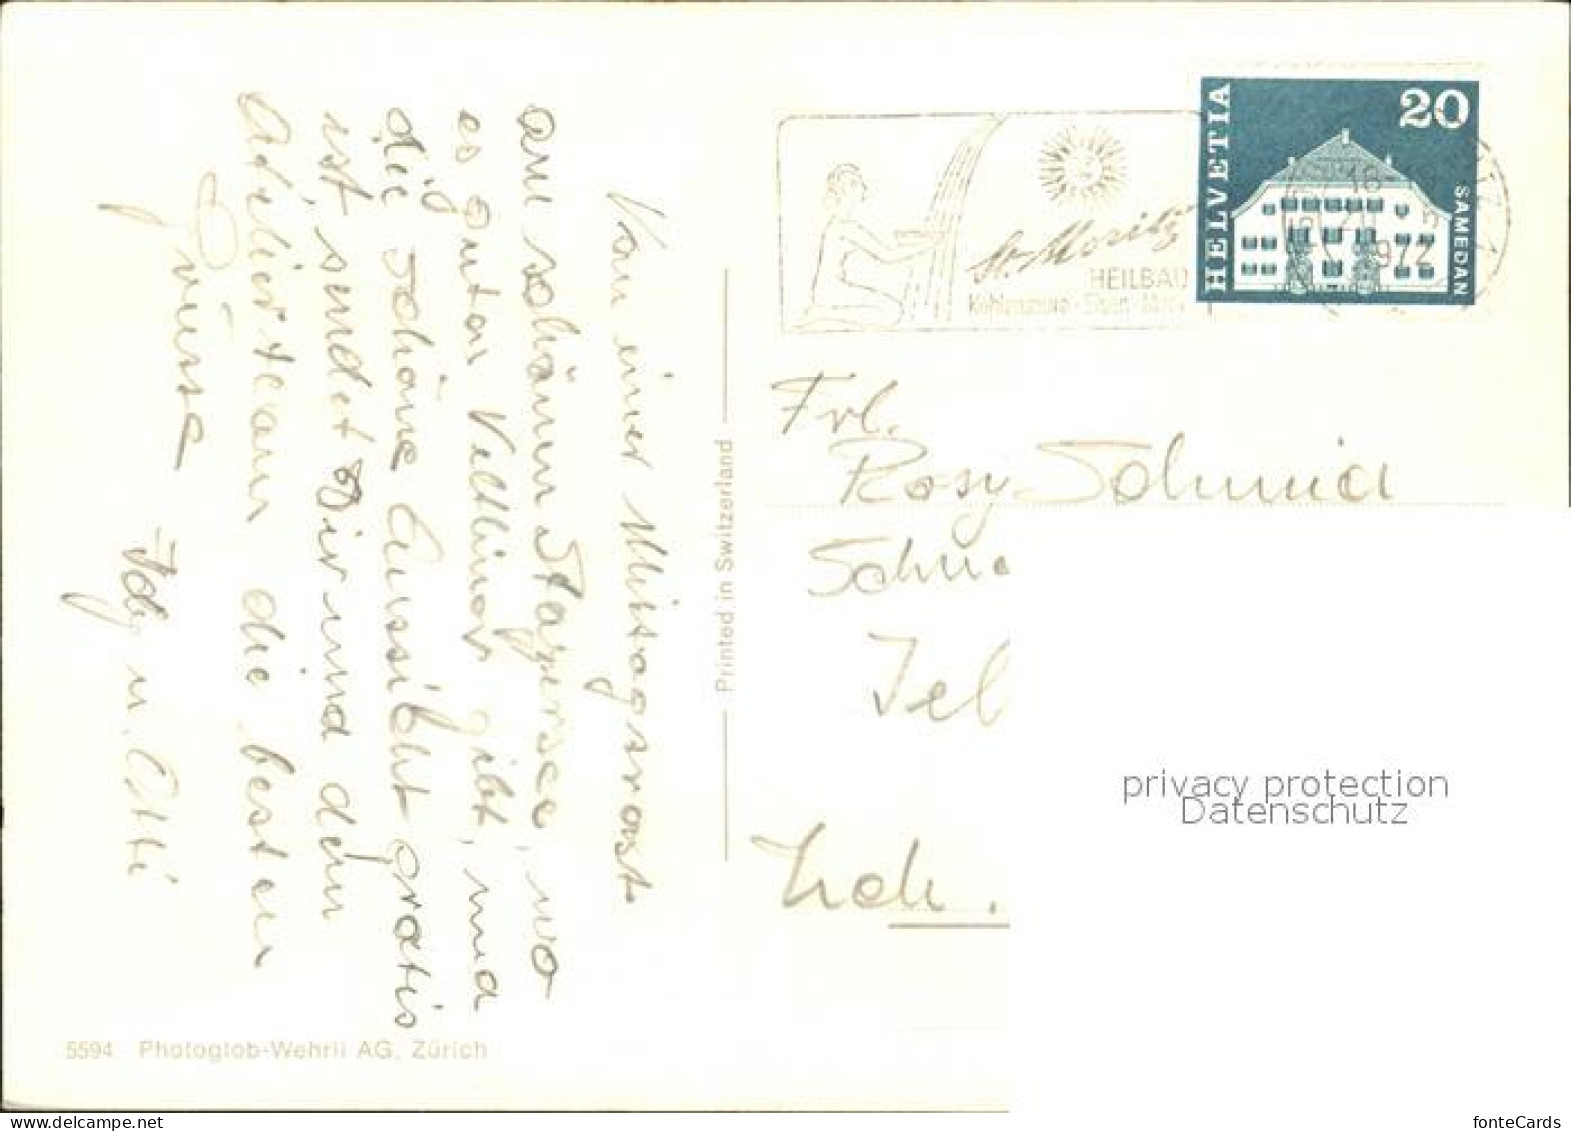 Von einer Mittagsrast
am schönen Stazersee, wo
es guten Veltliner gibt, und
die schöne Aussicht gratis
ist, sendet Dir und dem
Atelierteam die besten
Grüsse
Idy u. Otti
5594 Photoglob-Wehrli AG, Zürich
Printed in Switzerland
St. Moritz
HEILBAD
Kohlensäure - Eisen - Moor
HELVETIA
20
SAMEDAN
18-19
1972
Frl.
Rosy Schmid
Zch.
privacy protection
Datenschutz
www.delcampe.net
fonteCards